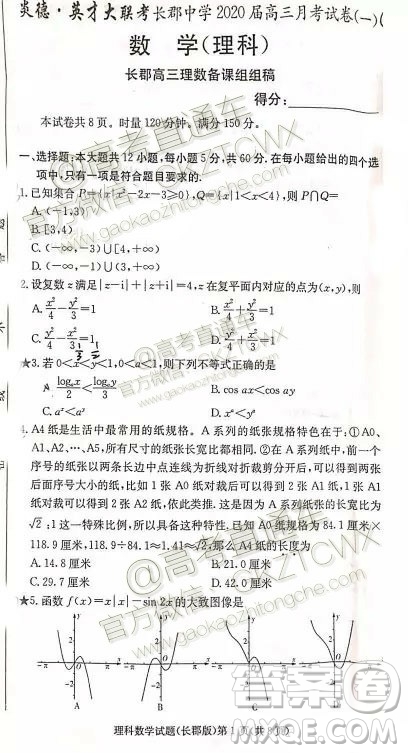 炎德·英才大联考长郡中学2020届高三月考试卷(一)
数 学(理科)
长郡高三理数备课组组稿
得分:
本试卷共8页。时量120分钟。满分150分。
一、选择题:本大题共12小题,每小题5分,共60分.在每小题给出的四个选
项中,只有一项是符合题目要求的.
1.已知集合P={x|x²-2x-3≥0},Q={x|1<x<4},则P∩Q=
A.(-1,3)
B.[3,4)
C.(-∞,-3)∪[4,+∞)
D.(-∞,-3)∪(-1,+∞)
2.设复数z满足|z-i|+|z+i|=4,z在复平面内对应的点为(x,y),则
A.x²/4-y²/3=1 B.x²/4+y²/3=1
C.y²/4-x²/3=1 D.y²/4+x²/3=1
★3.若0<x<y<1,0<a<1,则下列不等式正确的是
B.cos ax<cos ay
C.aˣ<aʸ D.xᵃ<yᵃ
4.A4纸是生活中最常用的纸规格。A系列的纸张规格特色在于:①A0、
A1、A2、…、A5,所有尺寸的纸张长宽比都相同.②在A系列纸中,前一个
序号的纸张以两条长边中点连线为折线对折裁剪分开后,可以得到两张
后面序号大小的纸,比如1张A0纸对裁后可以得到2张A1纸,1张A1
纸对裁可以得到2张A2纸,依此类推.这是因为A系列纸张的长宽比为
√2:1这一特殊比例,所以具备这种特性。已知A0纸规格为84.1厘米×
118.9厘米,118.9÷84.1≈1.41≈√2,那么A4纸的长度为
A.14.8厘米 B.21.0厘米
C.29.7厘米 D.42.0厘米
★5.函数f(x)=x|x|-sin 2x的大致图像是
A B C D
理科数学试题(长郡版)第1页(共8页)
@高考直通车
官方微信:GKZTCWX
www.gaokaozhitongche.com